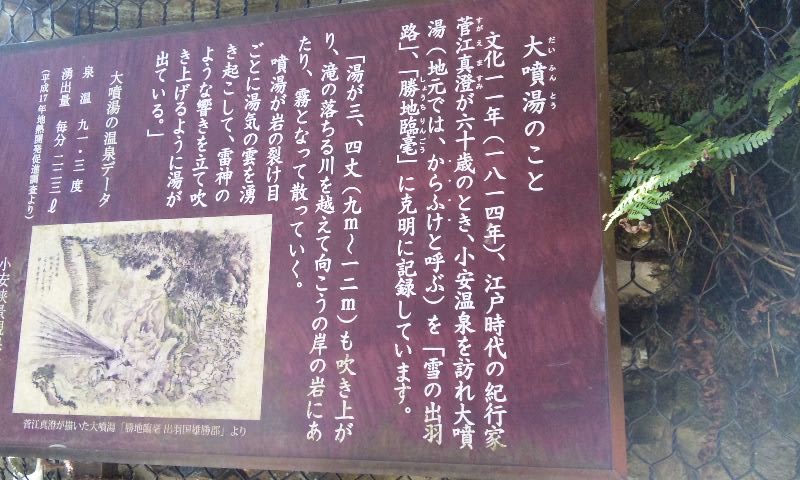 大噴湯のこと
だいふんとう
文化一一年（一八一四年）、江戸時代の紀行家
菅江真澄が六十歳のとき、小安温泉を訪れ大噴
すがえますみ
湯（地元では、からふけと呼ぶ）を「雪の出羽
路」、「勝地臨毫」に克明に記録しています。
しょうちりんごう
「湯が三、四丈（九m～一二m）も吹き上が
り、滝の落ちる川を越えて向こうの岸の岩にあ
たり、霧となって散っていく。
噴湯が岩の裂け目
ごとに湯気の雲を湧
き起こして、雷神の
ような響きを立て吹
き上げるように湯が
出ている。」
大噴湯の温泉データ
泉 温 九一・三 度
湧出量 毎分 二二三ℓ
（平成17年地熱開発促進調査より）
菅江真澄が描いた大噴湯「勝地臨毫 出羽国雄勝郡」より
小安峡景観